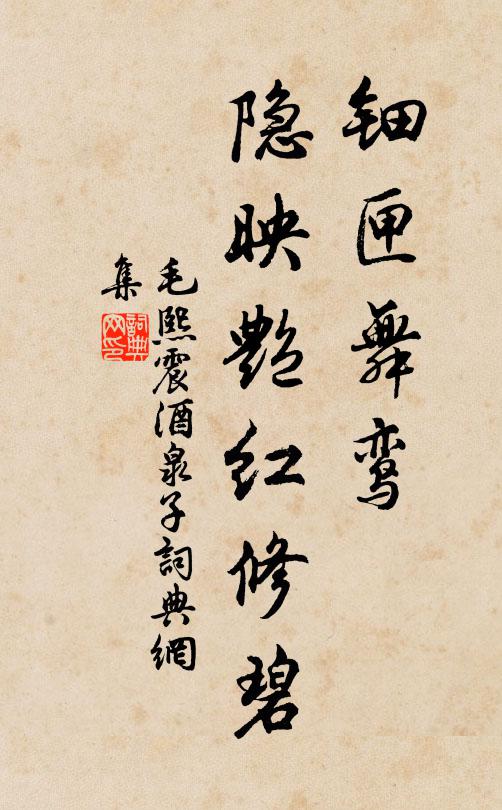 钿匣舞鸾
隐映艳红修碧
毛熙震酒泉子詞典網
集
詞典網印